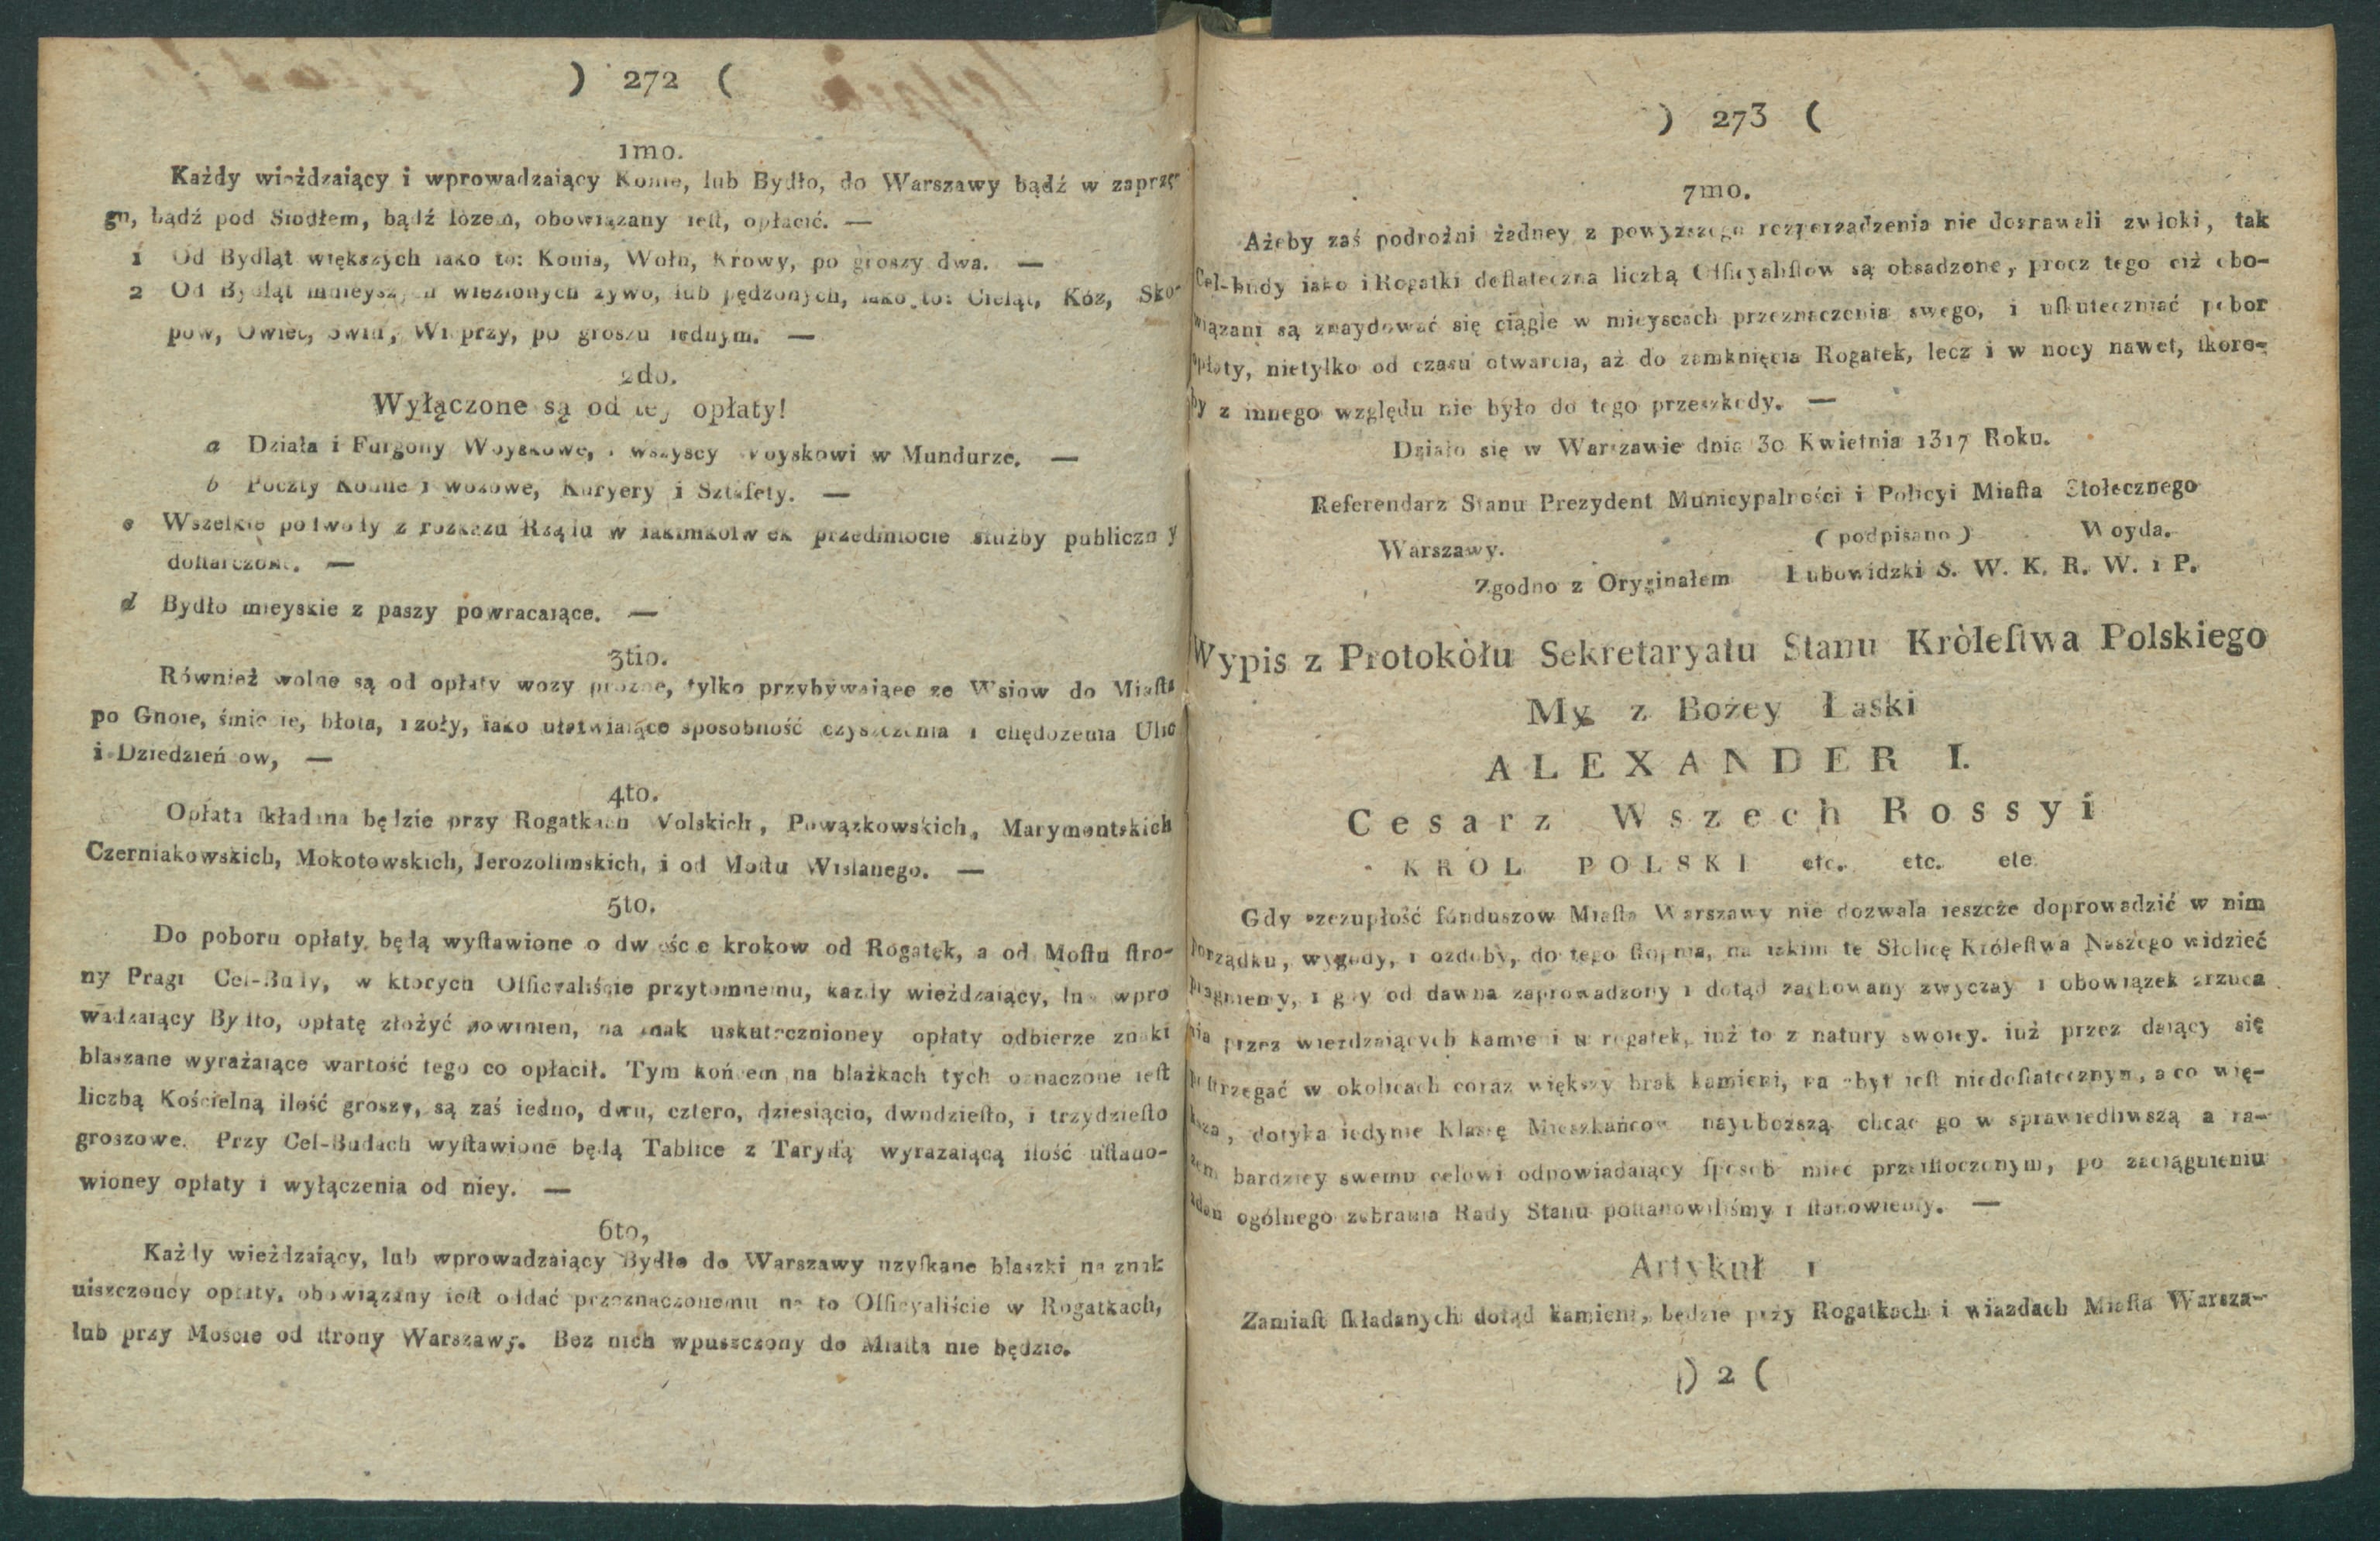 ) 272 (
1mo.
Każdy wieżdzaiący i wprowadzaiący Konie, lub Bydło, do Warszawy bądź w zaprzę-
gu, bądź pod Siodłem, bądź lòzem, obowiązany ieſt, opłacić. —
1 Od Bydląt większych iako to: Konia, Wołu, Krowy, po groszy dwa. —
2 Od Bydląt mnieyszych wiezionych żywo, lub pędzonych, iako to: Cieląt, Kóz, Sko-
pow, Owiec, Swiń, Wieprzy, po groszu iednym. —
2do.
Wyłączone są od tey opłaty!
a Działa i Furgony Woyskowe, i wszyscy Woyskowi w Mundurze. —
b Poczty Konne i wozowe, Kuryery i Sztafety. —
c Wszelkie podwody z rozkazu Rządu w iakimkolwiek przedmiocie służby publiczney
doſtarczone. —
d Bydło mieyskie z paszy powracaiące. —
3tio.
Również wolne są od opłaty wozy prożne, tylko przybywaiące ze Wsiow do Miaſta
po Gnoie, śmiecie, błota, i zoły, iako ułatwiaiące sposobność czyszczenia i chędożenia Ulic
i Dziedzień ow, —
4to.
Opłata ſkładana będzie przy Rogatkach Volskich, Powązkowskich, Marymontskich
Czerniakowskich, Mokotowskich, Jerozolimskich, i od Moſtu Wislanego. —
5to.
Do poboru opłaty będą wyſtawione o dwieście krokow od Rogatek, a od Moſtu ſtro-
ny Pragi Cel-Budy, w ktorych Officyaliście przytomnemu, każdy wieżdzaiący, lub wpro
wadzaiący Bydło, opłatę złożyć powinien, na znak uskutecznioney opłaty odbierze znaki
blaszane wyrażaiące wartość tego co opłacił. Tym końcem na blażkach tych oznaczone ieſt
liczbą Kościelną ilość groszy, są zaś iedno, dwu, cztero, dziesiącio, dwudzieſto, i trzydzieſto
groszowe. Przy Cel-Budach wyſtawione będą Tablice z Taryffą wyrazaiącą ilość uſtano-
wioney opłaty i wyłączenia od niey. —
6to,
Każdy wieżdzaiący, lub wprowadzaiący Bydło do Warszawy uzyſkane blaszki na znak
uiszczoney opłaty, obowiązany ieſt oddać przeznaczonemu na to Officyaliście w Rogatkach,
lub przy Moście od ſtrony Warszawy. Bez nich wpuszczony do Miaſta nie będzie.
) 273 (
7mo.
Ażeby zaś podrożni żadney z powyższego rozporządzenia nie doznawali zwłoki, tak
Cel-budy iako i Rogatki doſtateczna liczbą Officyaliſtow są obsadzone, procz tego ciż obo-
wiązani są znaydować się ciągle w mieyscach przeznaczenia swego, i uſkuteczniać pobor
opłaty, nietylko od czasu otwarcia, aż do zamknięcia Rogatek, lecz i w nocy nawet, ſkoro-
by z innego względu nie było do tego przeszkody. —
Działo się w Warszawie dnia 30 Kwietnia 1317 Roku.
Referendarz Stanu Prezydent Municypalności i Policyi Miaſta Stołecznego
Warszawy. (podpisano) Woyda.
Zgodno z Oryginałem Łubowidzki S. W. K. R. W. i P.
Wypis z Protokòłu Sekretaryatu Stanu Kròleſtwa Polskiego
My z Bożey Łaski
ALEXANDER I.
Cesarz Wszech Rossyi
KROL POLSKI etc. etc. ete.
Gdy szczupłość funduszow Miaſta Warszawy nie dozwala ieszcze doprowadzić w nim
porządku, wygody, i ozdoby, do tego ſtopnia, na iakim tę Stolicę Króleſtwa Naszego widzieć
pragniemy, i gdy od dawna zaprowadzony i dotąd zachowany zwyczay i obowiązek zrzuca
nia przez wierdzaiących kamieni u rogatek, iuż to z natury swoiey. iuż przez daiący się
poſtrzegać w okolicach coraz większy brak kamieni, na zbyt ieſt niedoſtatecznym, a co wię-
ksza, dotyka iedynie Klassę Mieszkańcow nayuboższą chcąc go w sprawiedliwszą a ra-
zem bardziey swemu celowi odpowiadaiący ſposob mieć przeiſtoczonym, po zaciągnieniu
zdań ogólnego zebrania Rady Stanu poſtanowiliśmy i ſtanowiemy. —
Artykuł 1
Zamiaſt ſkładanych dotąd kamieni, będzie przy Rogatkach i wiazdach Miaſta Warsza-
) 2 (